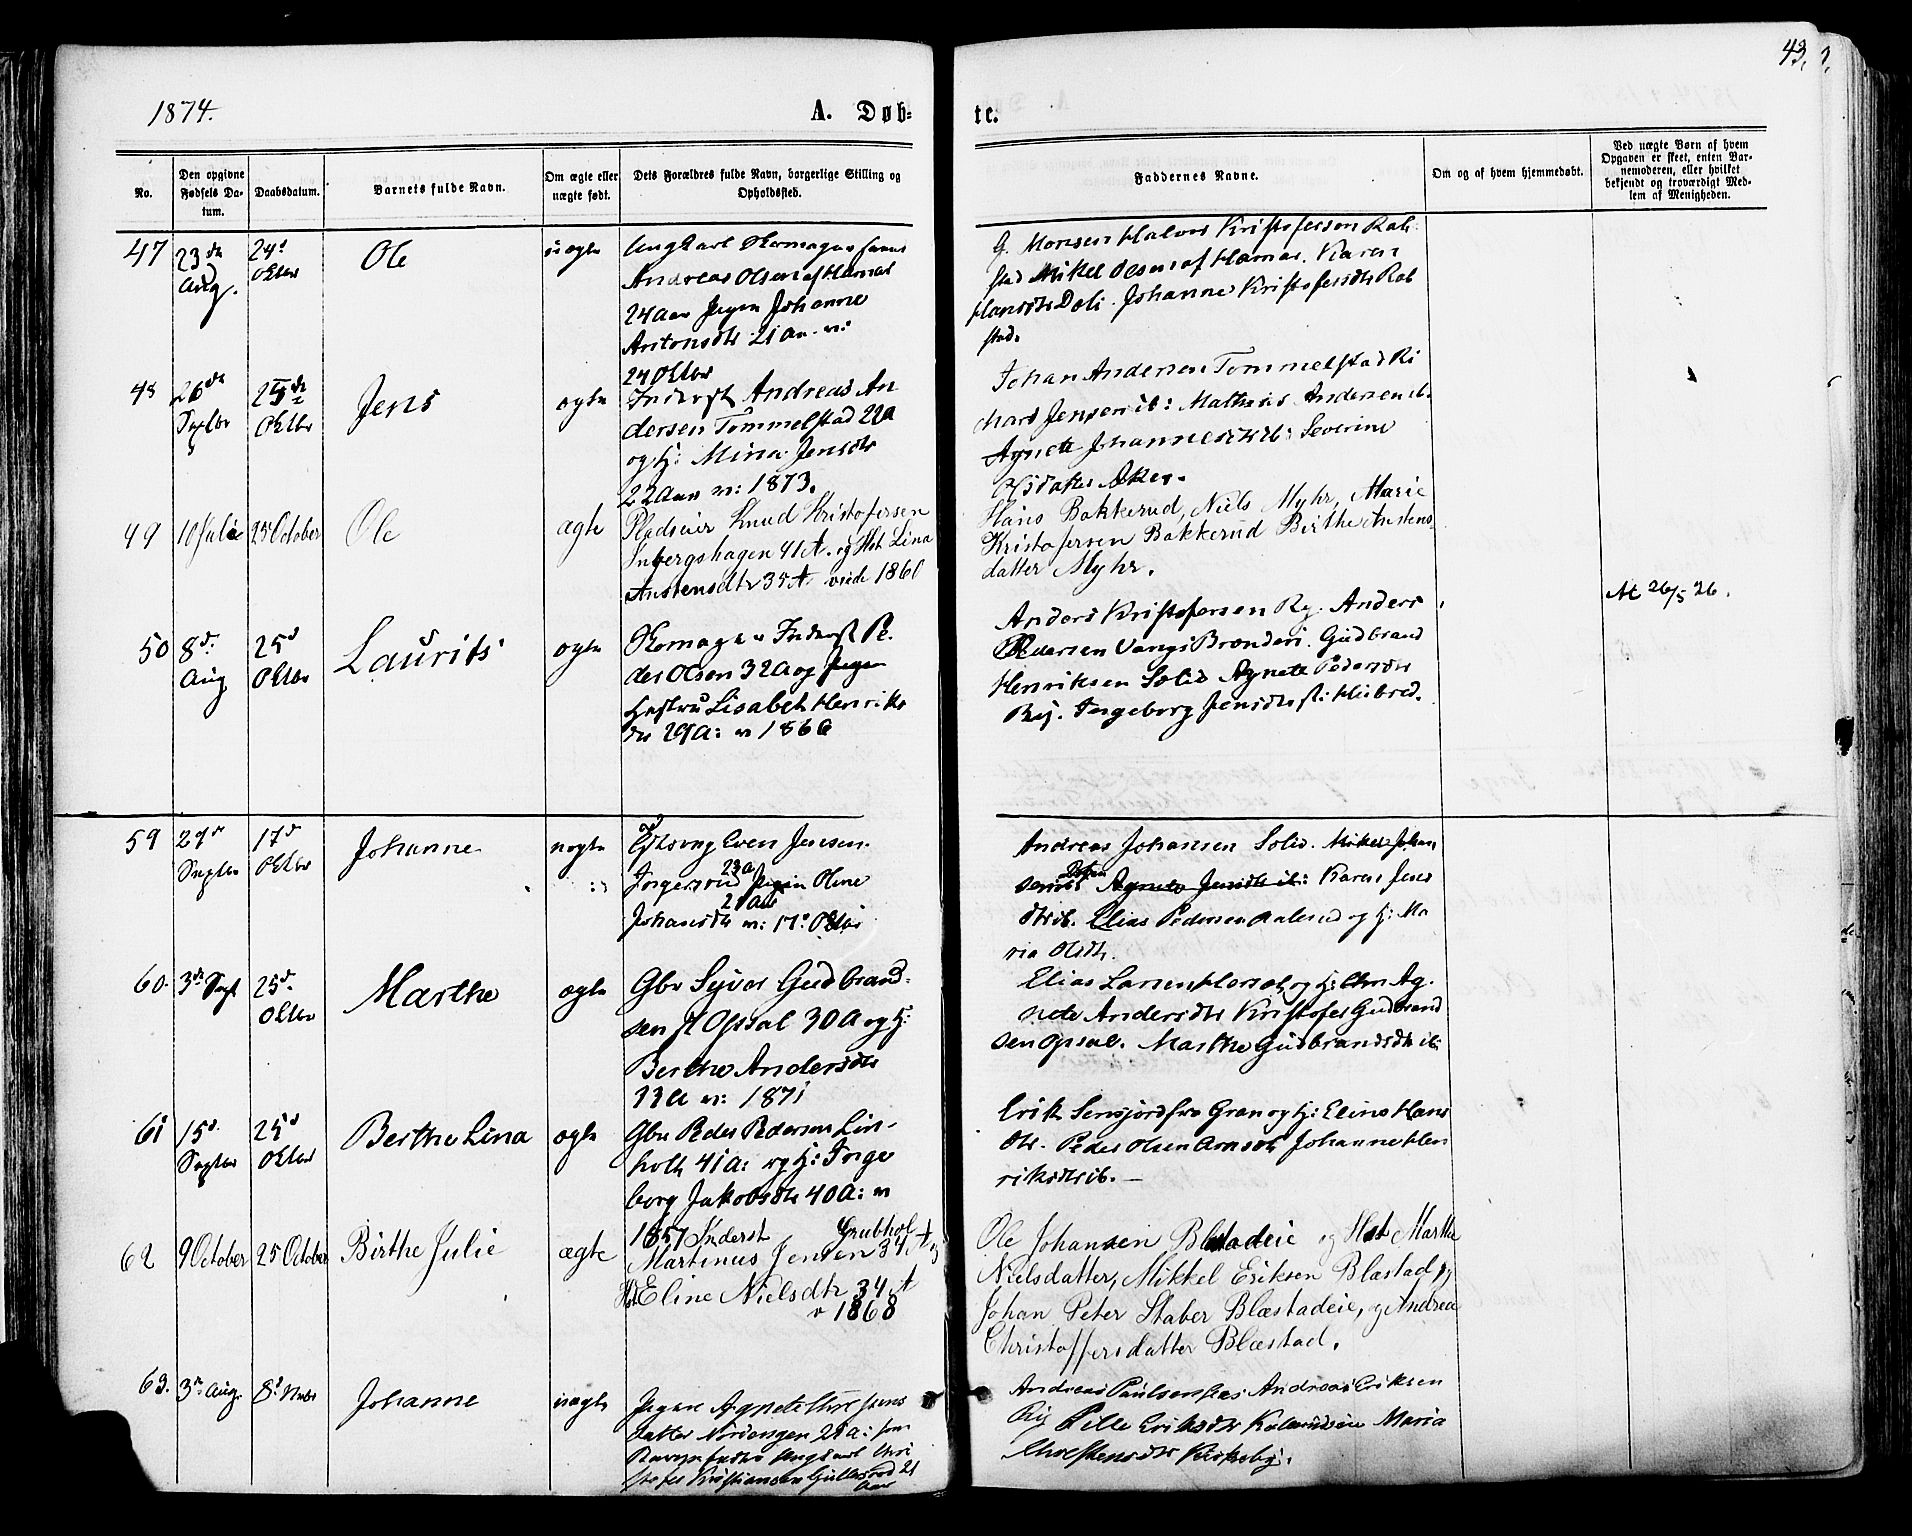 43,
1874.
A. Døb=
te.
No.
Den opgivne Fødsels Da-tum.
Daabsdatum.
Barnets fulde Navn.
Om ægte eller uægte født.
Dets Forældres fulde Navn, borgerlige Stilling og Opholdssted.
Faddernes Navne.
Om og af hvem hjemmedøbt.
Ved uægte Børn af hvem Opgaven er skeet, enten Bar-nemoderen, eller hvilket bekjendt og troværdigt Med-lem af Menigheden.
47
23de Aug.
24d Oktbr
Ole
uægte
Ungkarl Skomager
Andreas Olsen af Hamar
24 Aar Pigen Johanne
Antonsdtr 21 Aar v:
24 Oktbr
G. Monsen Halvor Kristofersen Rob
stad Mikel Olsen af Hamar. Karen
Hansdtr Doli. Johanne Kristofersdtr Rob
stad.
48
26de Septbr
25de Oktbr
Jens
ægte
Inderst Andreas An
dersen Tommelstad 22 A
og h: Mina Jensdtr
22 Aar v: 1873.
Johan Andersen Tommelstad Ri
chard Jensen ib: Mathias Andersen ib.
Agnete Johannesdtr ib: Severine
Aker.
49
10 Julie
25 October
Ole
ægte
Pladseier Knud Kristofersen
Inbergshagen 41 A. og Hst Lina
Austensdtr 35 A viede 1860
Hans Bakkerud, Niels Myhr, Marie
Kristofersen Bakkerud Birthe Austens
datter Myhr.
At 26/5 26.
50
8d. Aug
25d Oktbr
Laurits
ægte
Skomager Inderst Pe
der Olsen 32 A og Pigen
Hustru Lisabet Henriks
dtr 29 A: v 1866
Anders Kristofersen Ry. Anders
Pedersen Vangs Brænderi. Gudbrand
Henriksen Solid Agnete Pedersdtr
Ry. Ingeborg Jensdtr
59
27d Septbr
17d Oktbr
Johanne
uægte
Even Jensen
Jorgersrud 23 A Pigen Oline
21 Aar
Johansdtr v: 17d Oktbr
Andreas Johansen Solid. Mikel Johan
sen ib: Agnete Jensdtr ib: Karen Jens
dtr ib. Elias Pedersen Aalerud og h: Ma
ria Olsdtr.
60.
3de Sept
25d. Oktbr
Marthe
ægte
Gbr Syver Gudbrand-
sen Opsal 30 A og h:
Berthe Andersdtr
33 A v: 1871
Elias Larsen og h: Ag.
nete Andersdtr Kristofer Gudbrand
sen Opsal. Marthe Gudbrandsdtr ib:
61
15d. Septbr
25d Oktbr
Berthe Lina
ægte
Gbr Peder Pedersen Lin-
holt 41 A: og h: Inge
borg Jakobsdtr 40 A: v
1857
Erik fra Gran og h: Eline Hans
dtr. Peder Olsen Johanne Hen
riksdtr ib. —
62
9 October
25 October
Birthe Julie
ægte
Inderst Grubhol
Martinus Jensen 34 A og
Hst Eline Nielsdtr 34 A
v 1868
Ole Johansen Blæstadeie og Hst Marthe
Nielsdatter, Mikkel Eriksen Blæstad og
Johan Peter Staber Blæstadeie, og Andrea
Christoffersdatter Blæstad.
63.
3de Aug.
8d Novbr
Johanne
uægte
Pigen Agnete
datter Nordengen 21 A: som
Barnefader Ungkarl Chri
stofer Kristiansen Gullerud 21
Aar
Andreas Paulsen Andreas Eriksen
Ry Pelle Eriksdtr Maria
Kirkeby.